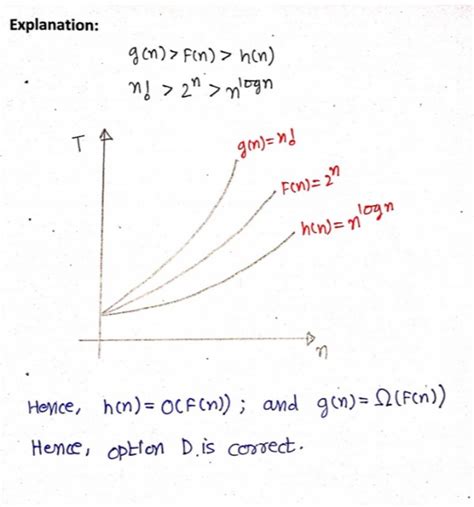 Explanation:
g(n) > F(n) > h(n)
n! > 2^n > n^logn
T
g(n)=n!
F(n)=2^n
h(n)=n^logn
n
Hence, h(n)=O(F(n)); and g(n)=Ω(F(n))
Hence, option D. is correct.